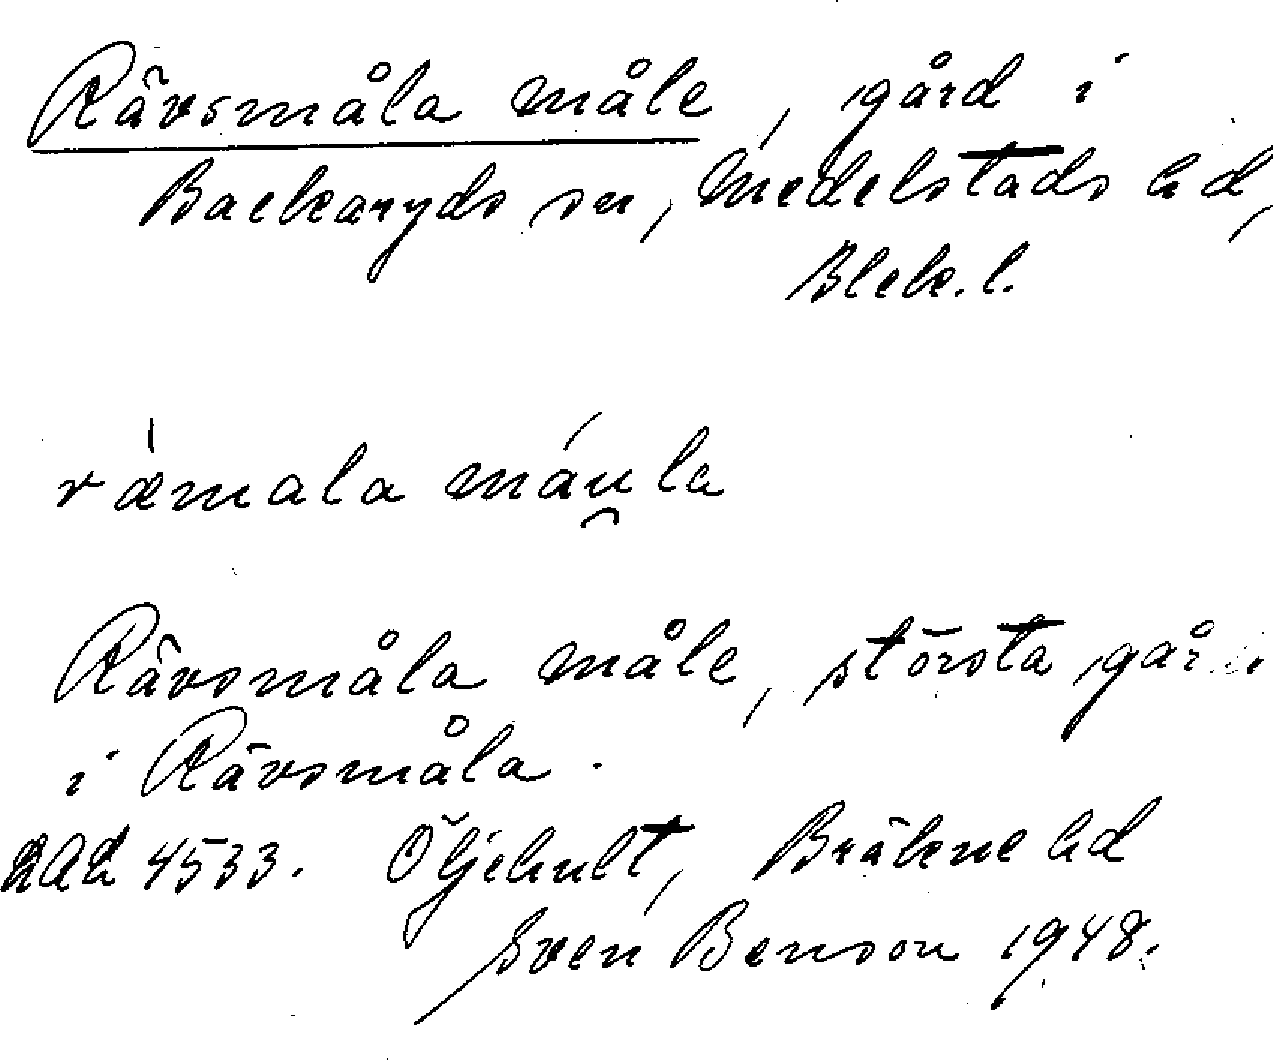 Rävsmåla måle, gård i
Backaryds sn, Medelstads hd,
Blek. l.
rǽmala máu̯la
Rävsmåla måle, största gården
i Rävsmåla.
4533. Öljehult, Bräkne hd
Sven Benson 1948.